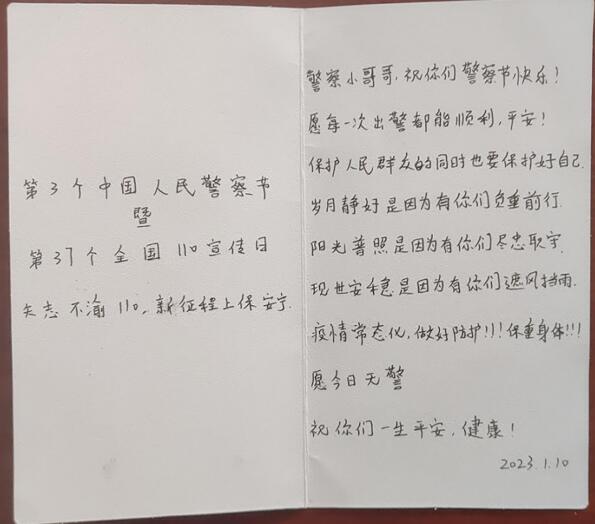 第3个中国人民警察节
暨
第37个全国110宣传日
矢志不渝110,新征程上保安宁.
警察小哥哥,祝你们警察节快乐!
愿每一次出警都能顺利,平安!
保护人民群众的同时也要保护好自己.
岁月静好是因为有你们负重前行.
阳光普照是因为有你们尽忠职守.
现世安稳是因为有你们遮风挡雨.
疫情常态化,做好防护!!!保重身体!!!
愿今日无警
祝你们一生平安,健康!
2023.1.10